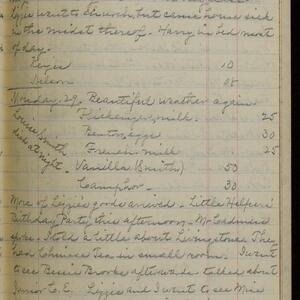 Lizzie went to Church, but came home sick
in the midst thereof. Harry in bed most
of day.
Roger 10
Nelson 25
Monday, 29. Beautiful weather again
Louise Smith died at night.
milk. 25
Benton, eggs 30
French, milk 25
Vanilla (Smith) 50
Camphor 30
More of Lizzie's goods arrived. Little Helpers'
Birthday Party, this afternoon. Mr Cadman
spoke. I told a little about Livingstone. They
had Chinese Tea in small room. I went
to see Bessie Brooks afterwards. talked about
Junior C.E. Lizzie and I went to see Miss